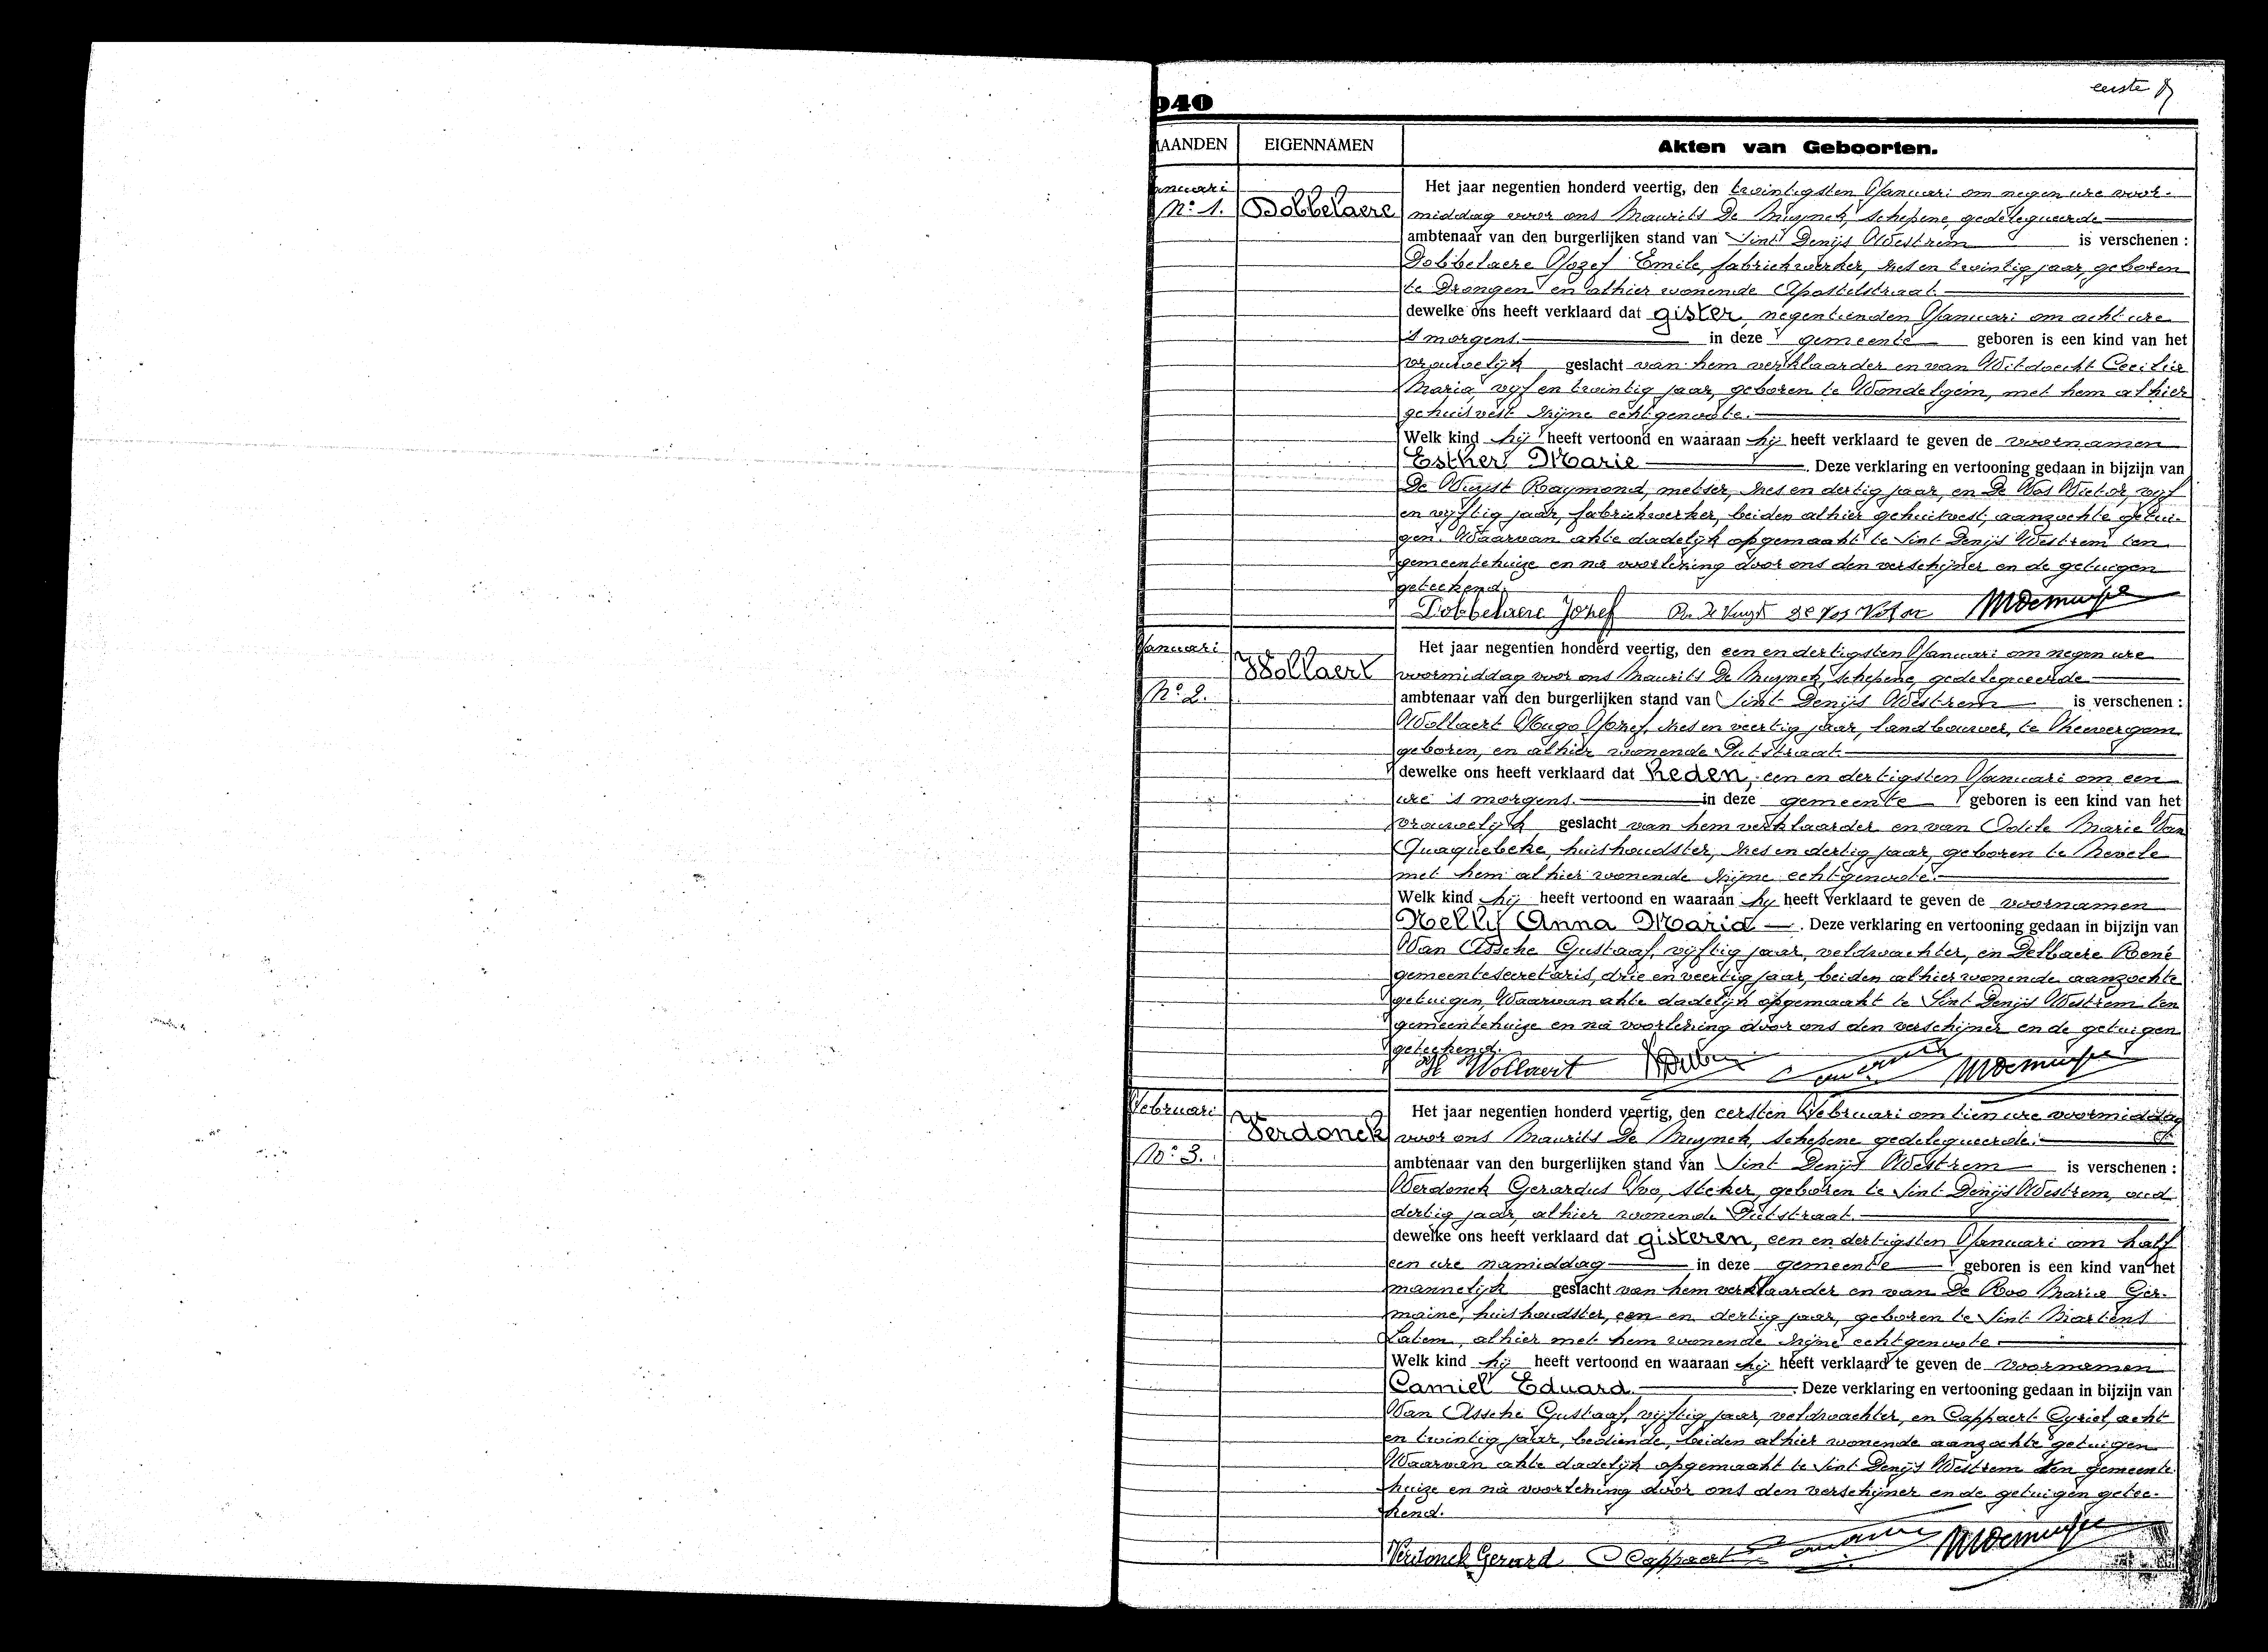 eerste
940
MAANDEN EIGENNAMEN Akten van Geboorten.
Januari
N° 1. Dobbelaere
Het jaar negentien honderd veertig, den twintigsten Januari om negen ure voor-
middag voor ons Maurits De Muynck, schepene, gedelegueerde
ambtenaar van den burgerlijken stand van Sint Denijs Westrem is verschenen :
Dobbelaere Jozef Emile, fabriekwerker, zes en twintig jaar, geboren
te Drongen en alhier wonende Apostelstraat.
dewelke ons heeft verklaard dat gister, negentienden Januari om acht ure
's morgens. in deze gemeente geboren is een kind van het
vrouwelijk geslacht van hem verklaarder en van Wildvecht Cecilia
Maria, vyf en twintig jaar, geboren te Wondelgem, met hem alhier
gehuisvest zijne echtgenoote.
Welk kind hij heeft vertoond en waaraan hij heeft verklaard te geven de voornamen
Esther Marie . Deze verklaring en vertooning gedaan in bijzijn van
De Vuyst Raymond, metser, zes en dertig jaar, en De Vos Victor, vyf
en vyftig jaar, fabriekwerker, beiden alhier gehuisvest, aanzochte getui-
gen. Waarvan akte dadelijk opgemaakt te Sint Denijs Westrem ten
gemeentehuize en na voorlezing door ons den verschijner en de getuigen
geteekend.
Dobbelaere Jozef R. De Vuyst De Vos Victor MDemuynck
Januari Wollaert
N° 2.
Het jaar negentien honderd veertig, den een en dertigsten Januari om negen ure
voormiddag voor ons Maurits De Muynck, schepene, gedelegueerde
ambtenaar van den burgerlijken stand van Sint Denijs Westrem is verschenen :
Wollaert Hugo Jozef, zes en veertig jaar, landbouwer, te Vheewergem
geboren, en alhier wonende Putstraat.
dewelke ons heeft verklaard dat heden, een en dertigsten Januari om een
ure 's morgens. in deze gemeente geboren is een kind van het
vrouwelijk geslacht van hem verklaarder en van Odile Marie Van
Quaquebeke, huishoudster, zes en dertig jaar, geboren te Nevele
met hem alhier wonende zijne echtgenoote.
Welk kind hij heeft vertoond en waaraan hy heeft verklaard te geven de voornamen
Nelly Anna Maria . Deze verklaring en vertooning gedaan in bijzijn van
Van Assche Gustaaf, vyftig jaar, veldwachter, en Delbaere René
gemeentesecretaris, drie en veertig jaar, beiden alhier wonende aanzochte
getuigen, Waarvan akte dadelijk opgemaakt te Sint Denijs Westrem ten
gemeentehuize en na voorlezing door ons den verschijner en de getuigen
geteekend.
H Wollaert MDemuynck
Februari Verdonck
N° 3.
Het jaar negentien honderd veertig, den eersten Februari om tien ure voormiddag
voor ons Maurits De Muynck, schepene gedelegueerde.
ambtenaar van den burgerlijken stand van Sint Denijs Westrem is verschenen :
Verdonck Gerardus Ivo, steker, geboren te Sint Denijs Westrem, oud
dertig jaar, alhier wonende Putstraat.
dewelke ons heeft verklaard dat gisteren, een en dertigsten Januari om half
een ure namiddag in deze gemeente geboren is een kind van het
mannelijk geslacht van hem verklaarder en van De Roo Maria Ger-
maine, huishoudster, een en dertig jaar, geboren te Sint Martens
Latem, alhier met hem wonende zijne echtgenoote
Welk kind hij heeft vertoond en waaraan hij heeft verklaard te geven de voornamen
Camiel Eduard . Deze verklaring en vertooning gedaan in bijzijn van
Van Assche Gustaaf, vyftig jaar, veldwachter, en Cappaert Cyriel, acht
en twintig jaar, bediende, beiden alhier wonende aanzochte getuigen
Waarvan akte dadelijk opgemaakt te Sint Denijs Westrem ten gemeente
huize en na voorlezing door ons den verschijner en de getuigen getee-
kend.
Verdonck Gerard Cappaert MDemuynck